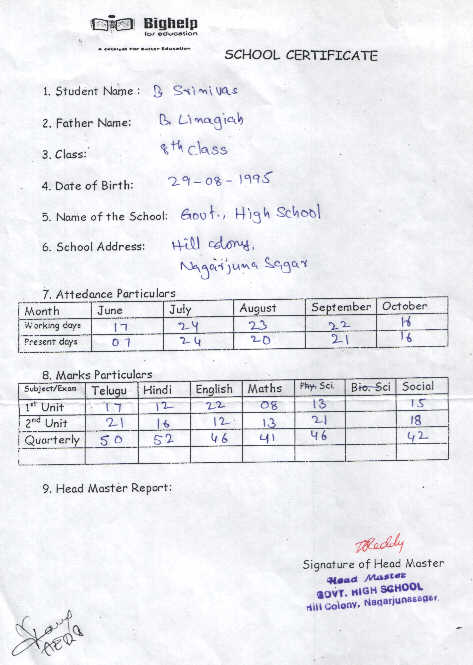 Bighelp
for education
A Catalyst For Better Education
SCHOOL CERTIFICATE
1. Student Name : B Srinivas
2. Father Name: B. Limagiah
3. Class: 8th class
4. Date of Birth: 29-08-1995
5. Name of the School: Govt., High School
6. School Address: Hill colony,
Nagarjuna Sagar
7. Attedance Particulars
Month June July August September October
Working days 17 24 23 22 16
Present days 07 24 20 21 16
8. Marks Particulars
Subject/Exam Telugu Hindi English Maths Phy. Sci. Bio. Sci Social
1st Unit 17 12 22 08 13 15
2nd Unit 21 16 12 13 21 18
Quarterly 50 52 46 41 46 42
9. Head Master Report:
Reddy
Signature of Head Master
Head Master
GOVT. HIGH SCHOOL
Hill Colony, Nagarjunasagar.